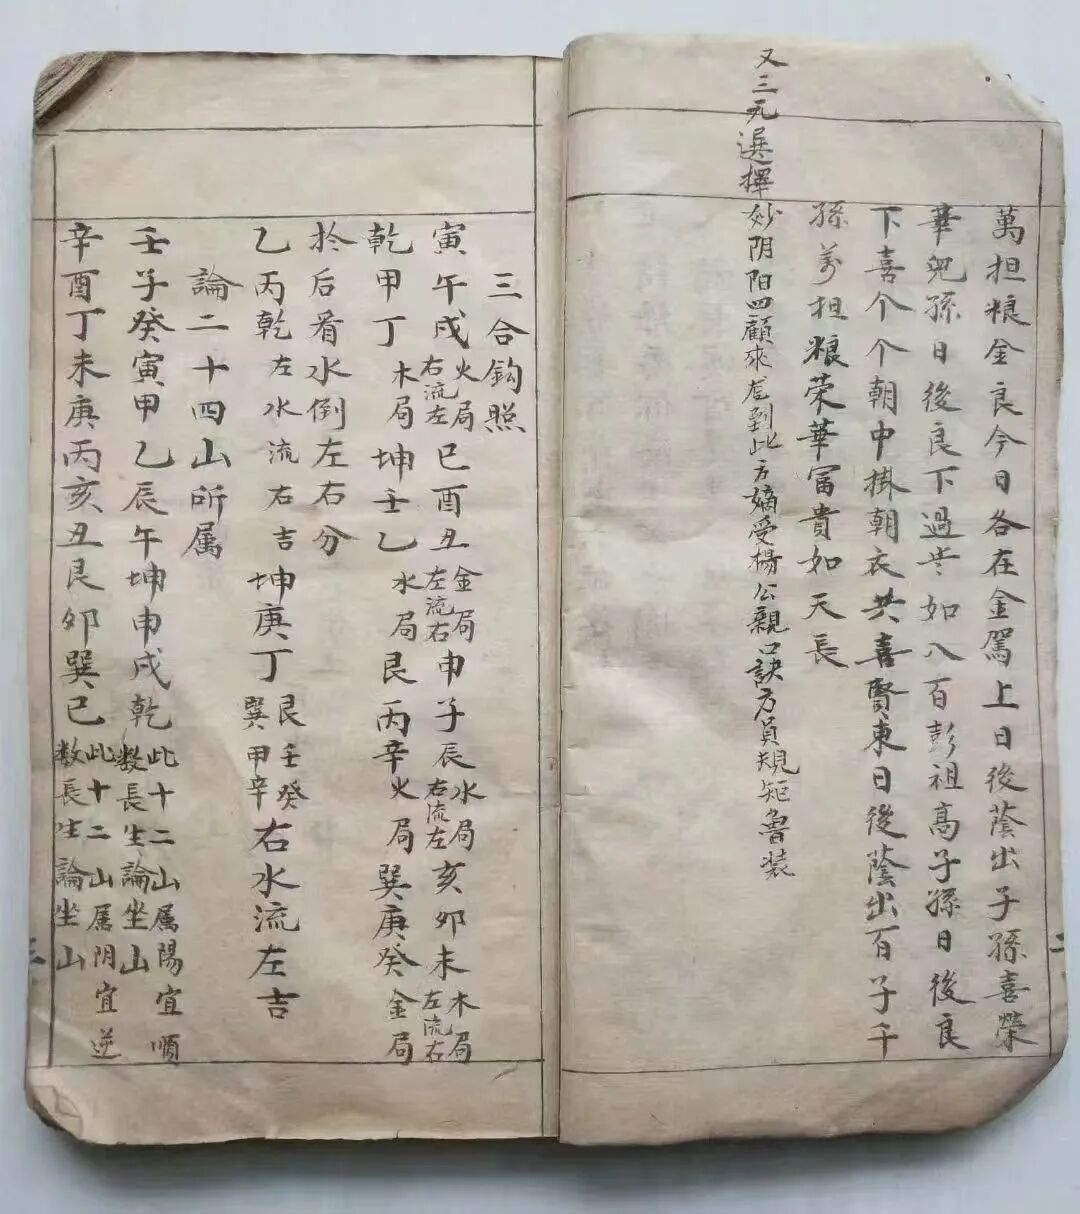 萬担粮金良今日各在金駡上日後蔭出子孫喜榮
華兒孫日後良下過世如八百彭祖高子孫日後良
下喜个个朝中掛朝衣共喜賢東日後蔭出百子千
孫萬担粮荣華富貴如天長
又三元選擇妙阴阳四顧來龙到此方嫡受楊公親口訣方員規矩魯装
二
三合鈎照
寅午戌火局右流左巳酉丑金局左流右申子辰水局右流左亥卯未木局左流右
乾甲丁木局坤壬乙水局艮丙辛火局巽庚癸金局
於后看水倒左右分
乙丙乾左水流右吉坤庚丁艮壬癸巽甲辛右水流左吉
論二十四山所属
壬子癸寅甲乙辰午坤申戌乾此十二山属陽宜順数長生論坐山
辛酉丁未庚丙亥丑艮卯巽巳此十二山属阴宜逆数長生論坐山
三